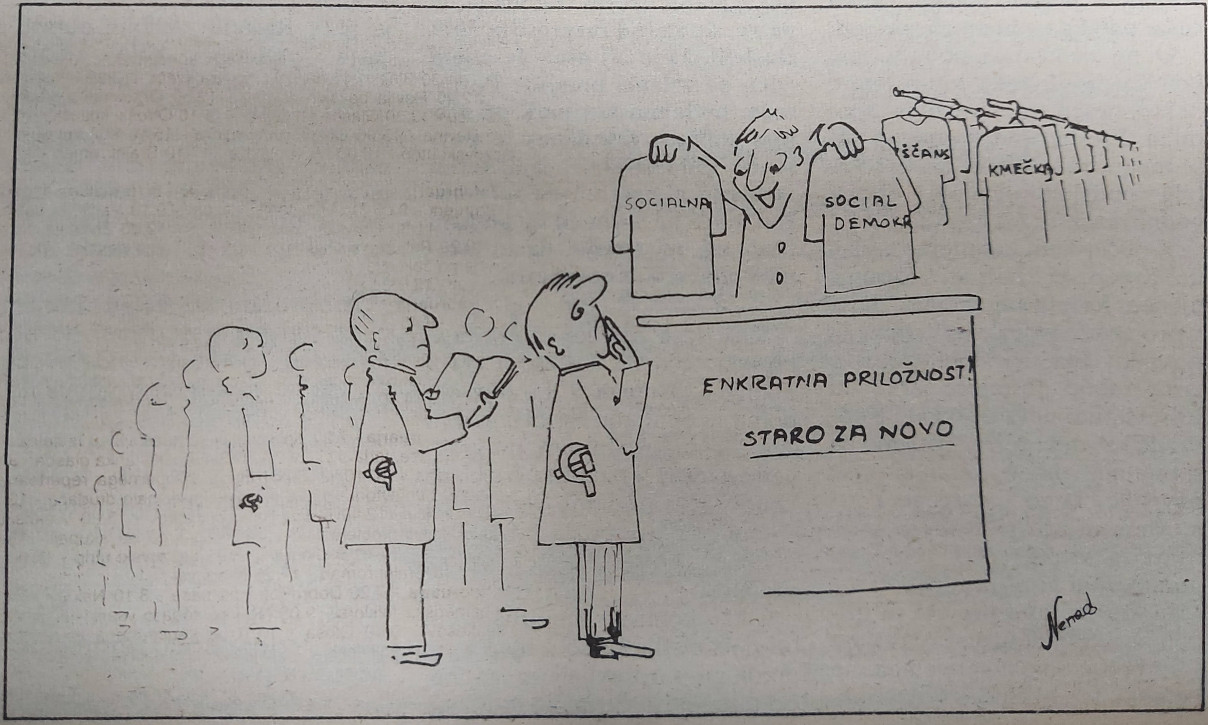 SOCIALNA
SOCIAL
DEMOKR
ŠČANS
KMEČKA
ENKRATNA PRILOŽNOST!
STARO ZA NOVO
Nenad